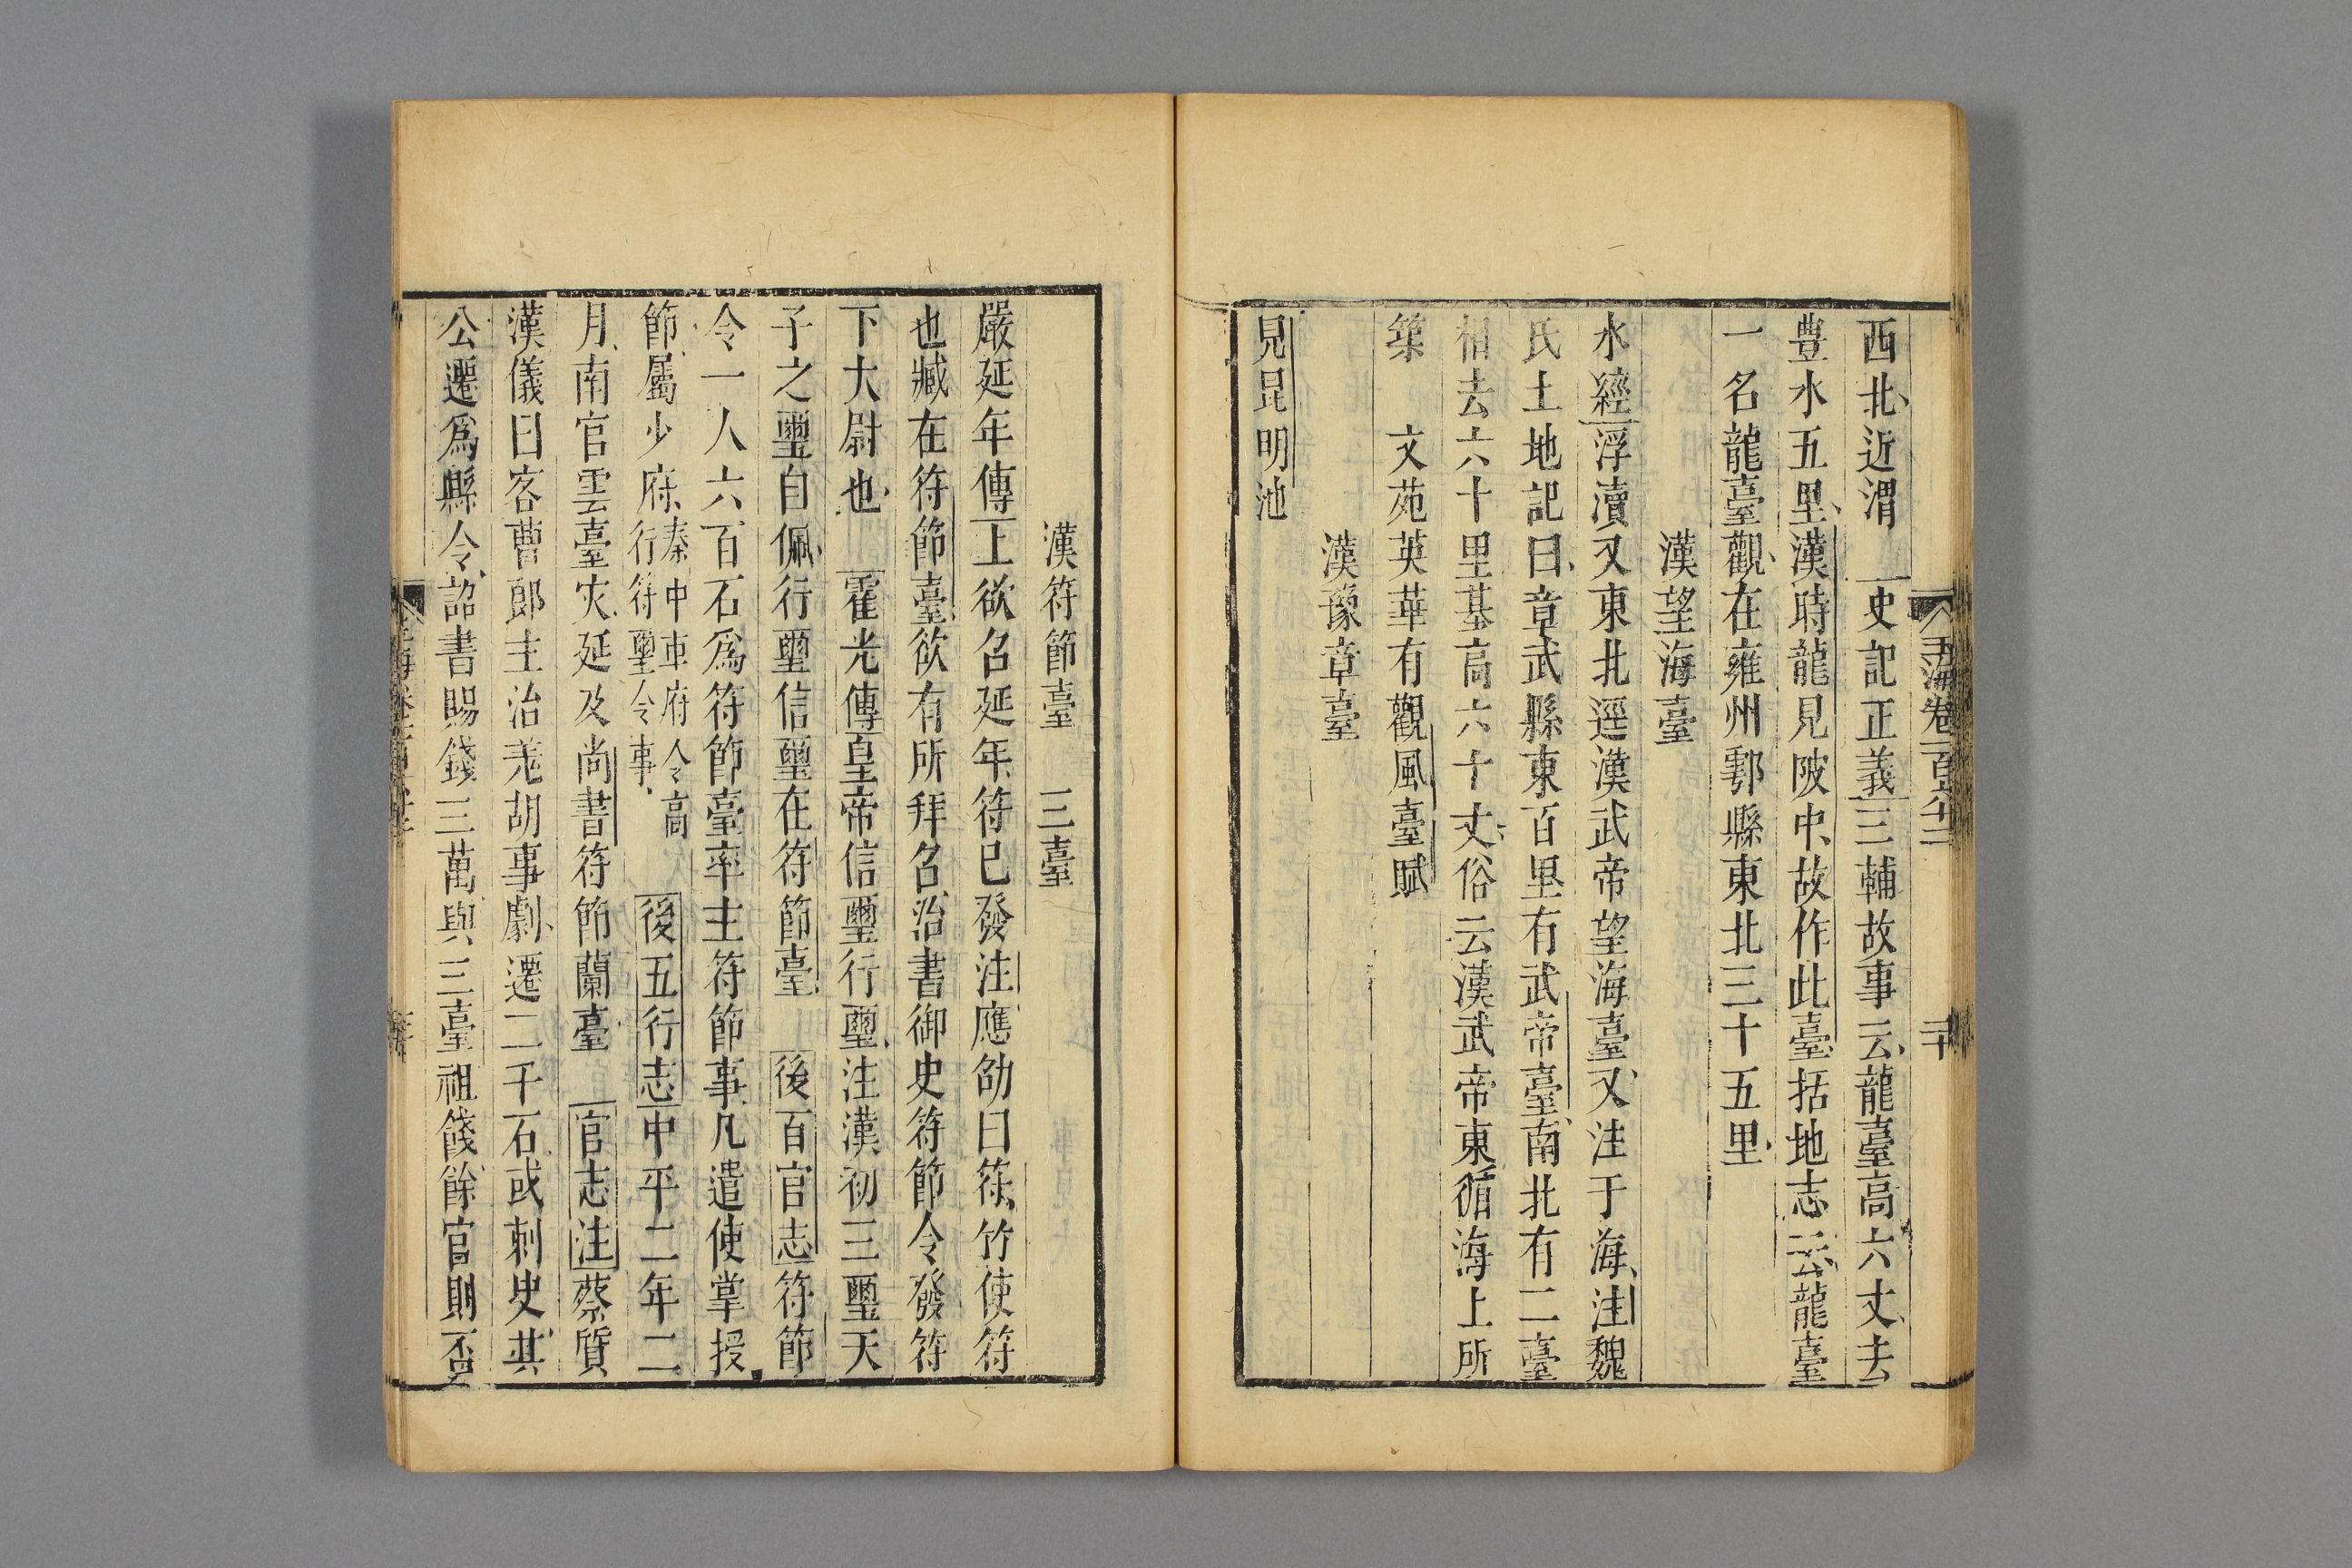 玉海卷一百六十二
二十
西北近渭 史記正義三輔故事云龍臺高六丈去
豊水五里漢時龍見陂中故作此臺括地志云龍臺
一名龍臺觀在雍州鄠縣東北三十五里
漢望海臺
水經浮瀆又東北逕漢武帝望海臺又注于海注魏
氏土地記曰章武縣東百里有武帝臺南北有二臺
相去六十里基高六十丈俗云漢武帝東循海上所
築 文苑英華有觀風臺賦
漢豫章臺
見昆明池
漢符節臺 三臺
嚴延年傳上欲召延年符已發注應劭曰符竹使符
也臧在符節臺欲有所拜召治書御史符節令發符
下大尉也 霍光傳皇帝信璽行璽注漢初三璽天
子之璽自佩行璽信璽在符節臺 後百官志符節
令一人六百石爲符節臺率主符節事凡遣使掌授
節屬少府秦中車府令高行符璽令事 後五行志中平二年二
月南宮雲臺灾延及尚書符節蘭臺 官志注蔡質
漢儀曰客曹郎主治羌胡事劇遷二千石或刺史其
公遷爲縣令詔書賜錢三萬與三臺祖餞餘官則否